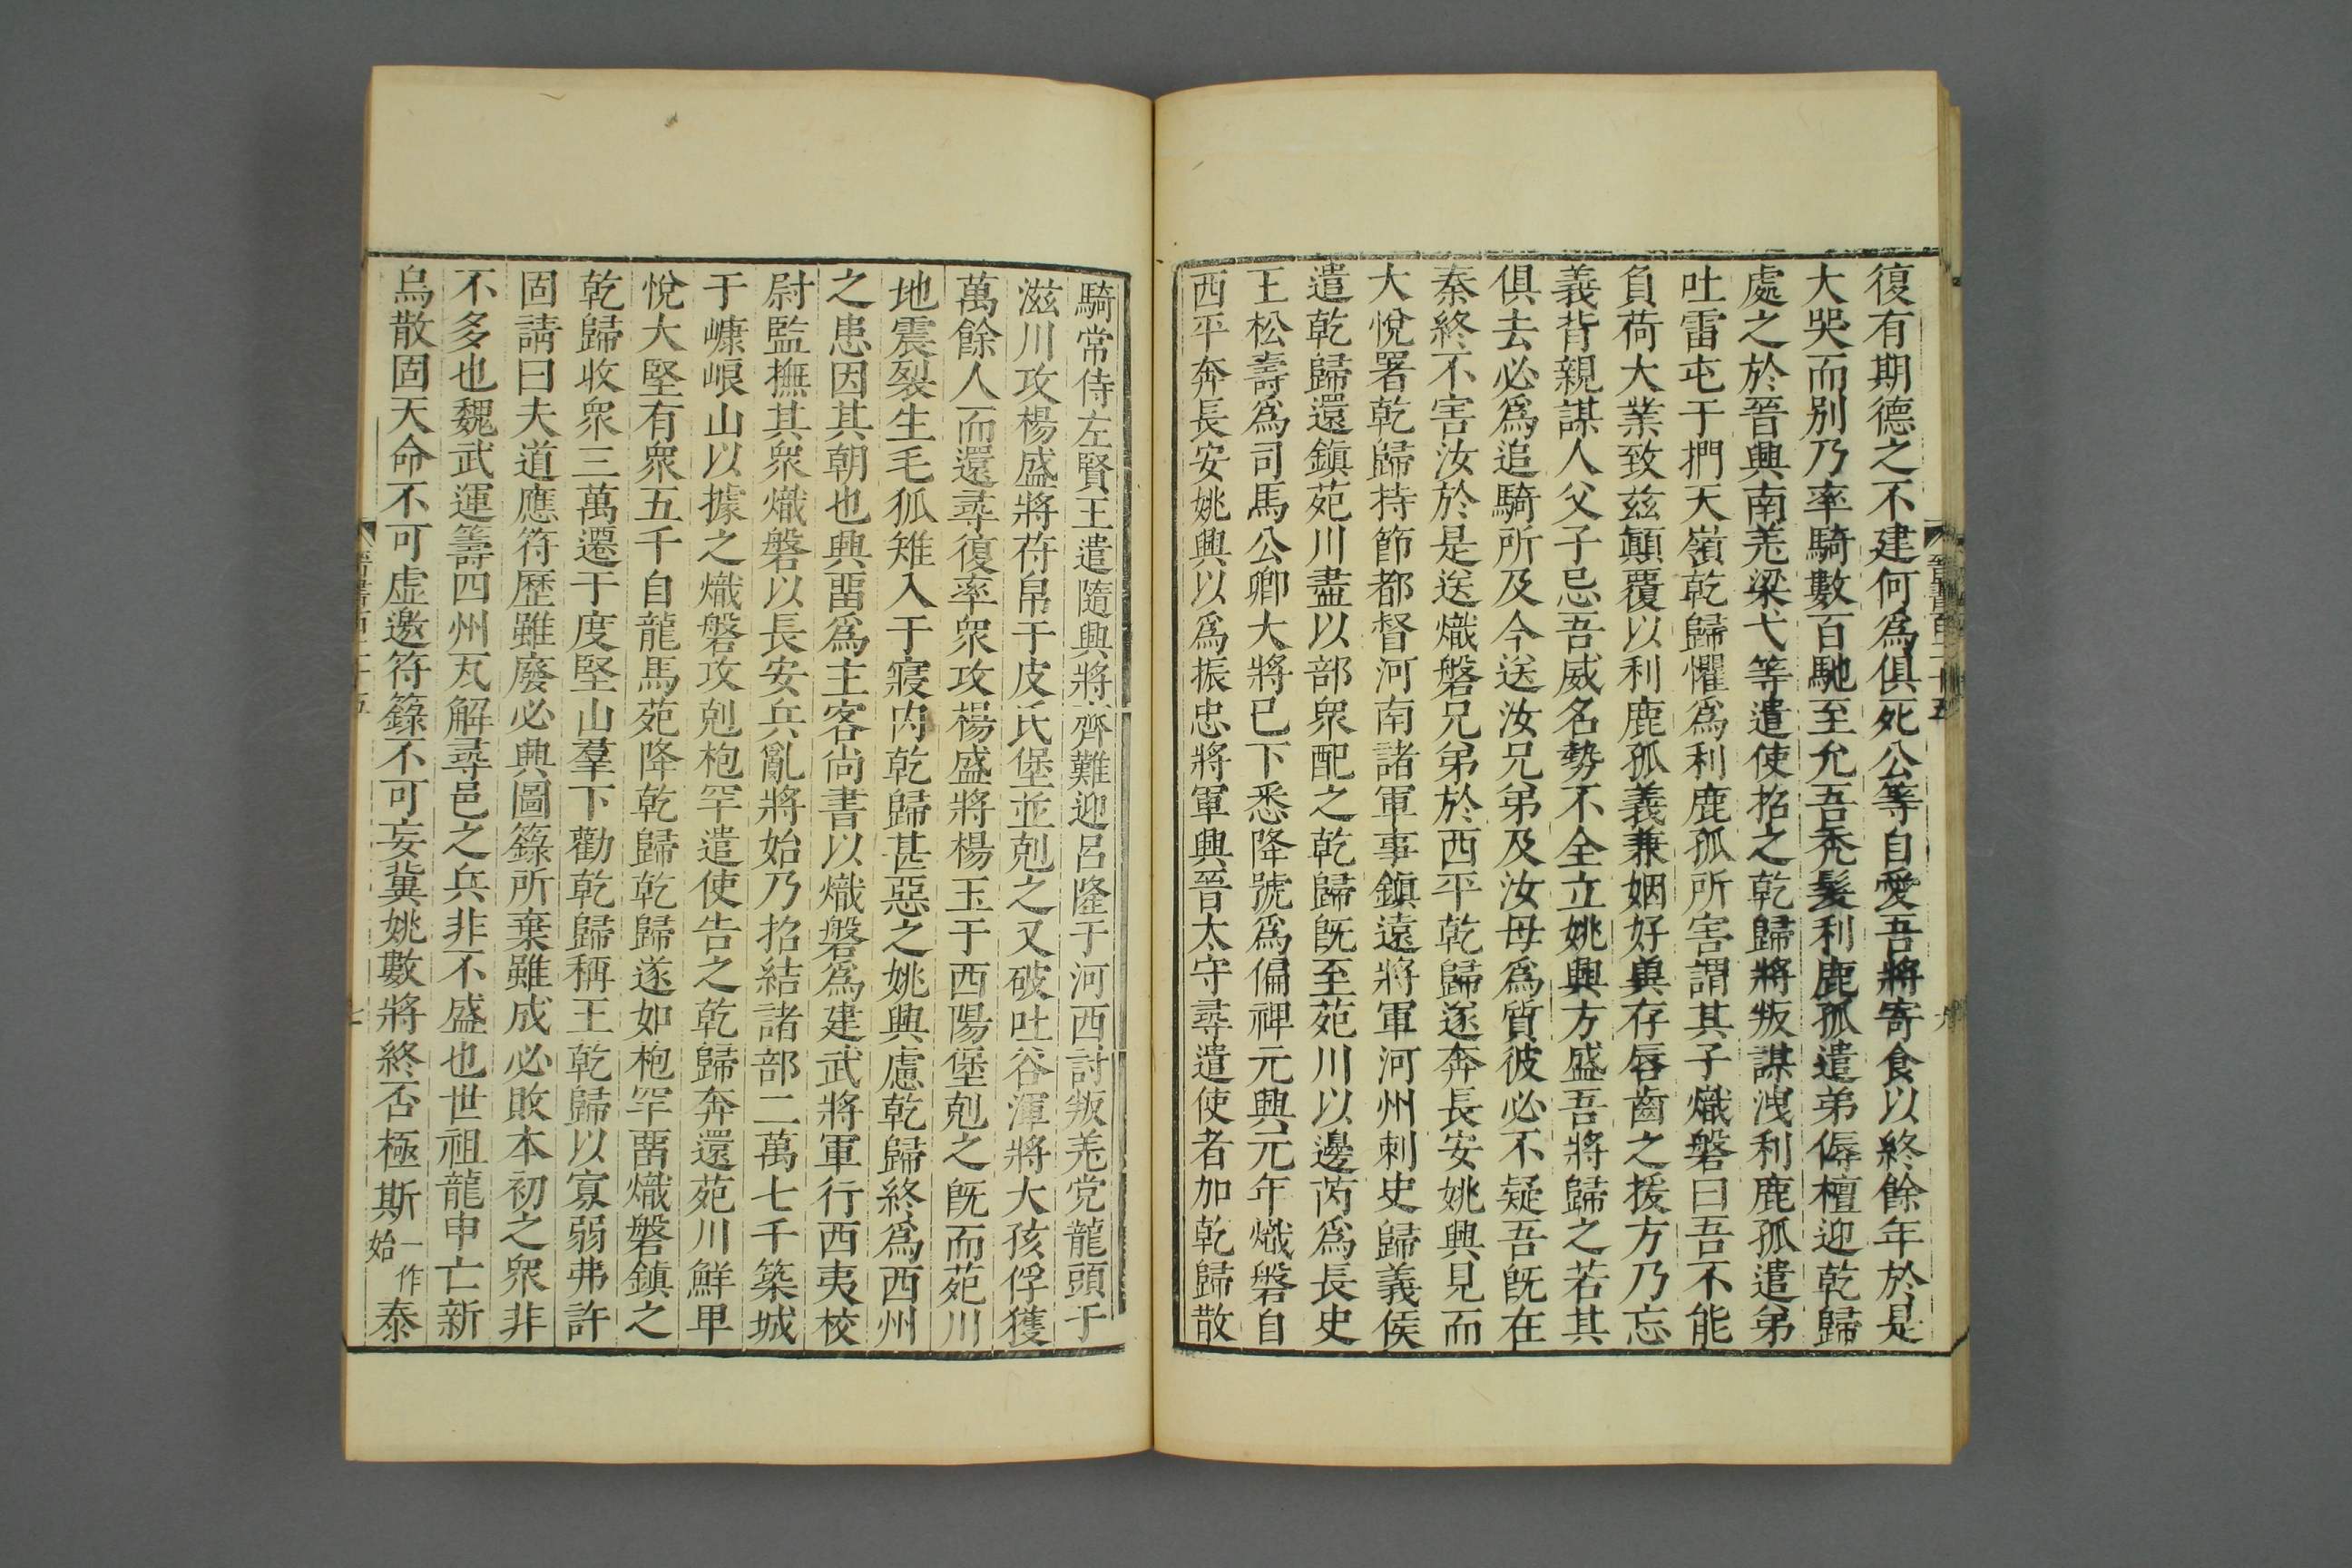 復有期德之不建何爲俱死公等自愛吾將寄食以終餘年於是
大哭而别乃率騎數百馳至允吾秃髮利鹿孤遣弟傉檀迎乾歸
處之於晉興南羌梁弋等遣使招之乾歸將叛謀洩利鹿孤遣弟
吐雷屯于捫天嶺乾歸懼爲利鹿孤所害謂其子熾磐曰吾不能
負荷大業致兹顛覆以利鹿孤義兼姻好兾存唇齒之援方乃忘
義背親謀人父子忌吾威名勢不全立姚興方盛吾將歸之若其
俱去必爲追騎所及今送汝兄弟及汝母爲質彼必不疑吾旣在
秦終不害汝於是送熾磐兄弟於西平乾歸遂奔長安姚興見而
大悅署乾歸持節都督河南諸軍事鎮遠將軍河州刺史歸義侯
遣乾歸還鎮苑川盡以部衆配之乾歸旣至苑川以邊芮爲長史
王松壽爲司馬公卿大將已下悉降號爲偏裨元興元年熾磐自
西平奔長安姚興以爲振忠將軍興晉太守尋遣使者加乾歸散
騎常侍左賢王遣隨興將齊難迎呂隆于河西討叛羌党龍頭于
滋川攻楊盛將苻帛于皮氏堡並剋之又破吐谷渾將大孩俘獲
萬餘人而還尋復率衆攻楊盛將楊玉于西陽堡剋之旣而苑川
地震裂生毛狐雉入于寢内乾歸甚惡之姚興慮乾歸終爲西州
之患因其朝也興畱爲主客尚書以熾磐爲建武將軍行西夷校
尉監撫其衆熾磐以長安兵亂將始乃招結諸部二萬七千築城
于嵻㟍山以據之熾磐攻剋枹罕遣使告之乾歸奔還苑川鮮卑
悅大堅有衆五千自龍馬苑降乾歸乾歸遂如枹罕畱熾磐鎮之
乾歸收衆三萬遷于度堅山羣下勸乾歸稱王乾歸以寡弱弗許
固請曰夫道應符歷雖廢必興圖籙所棄雖成必敗本初之衆非
不多也魏武運籌四州瓦解尋邑之兵非不盛也世祖龍申亡新
鳥散固天命不可虛邀符籙不可妄冀姚數將終否極斯一作始泰